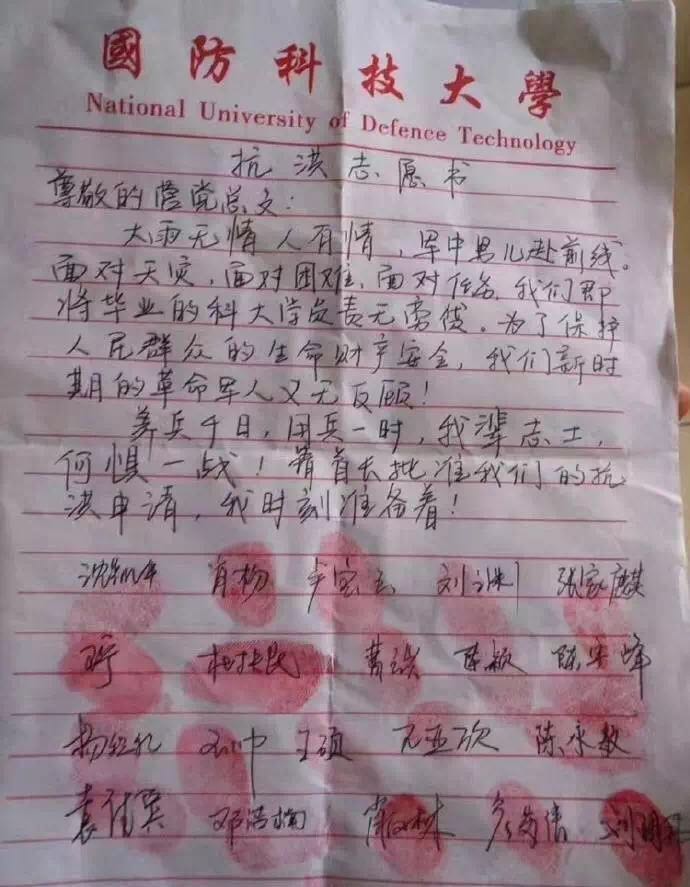 國防科技大學
National University of Defence Technology
抗洪志愿书
尊敬的营党总支：
大雨无情人有情，军中男儿赴前线。
面对天灾，面对困难，面对任务，我们即
将毕业的科大学员责无旁贷。为了保护
人民群众的生命财产安全，我们新时
期的革命军人义无反顾！
养兵千日，用兵一时，我辈志士，
何惧一战！请首长批准我们的抗
洪申请，我时刻准备着！
肖杨 刘 张家麒
陈颖 陈
王硕 陈永毅
袁 邓浩楠 刘